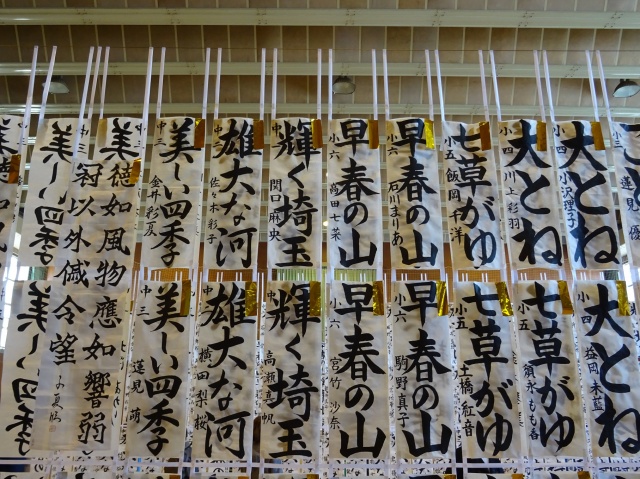 大とね
小四 小沢理子
大とね
小四 川上彩羽
七草がゆ
小五 飯岡千洋
早春の山
小六 石川まりあ
早春の山
小六
輝く埼玉
関口麻央
雄大な河
中二 佐々木彩子
美しい四季
中三 金井彩夏
美徳如風物應如響弱
冠以外 令望
美しい四季
大とね
小四 益岡未藍
七草がゆ
七草がゆ
小五 土橋紅音
早春の山
小六 駒野真子
早春の山
小六 宮竹沙奈
輝く埼玉
高瀬真帆
雄大な河
横田梨桜
美しい四季
中三 蓮見萌
美しい四季